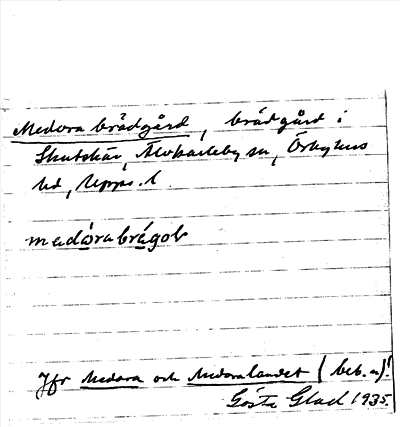 Medora brädgård, brädgård i
Skutskär, Älvkarleby sn, Örbyhus
hd, Upps. l.
medórabrégoḷ
Jfr Medora och Medoralandet (beb.n)!
Gösta Glad 1935.